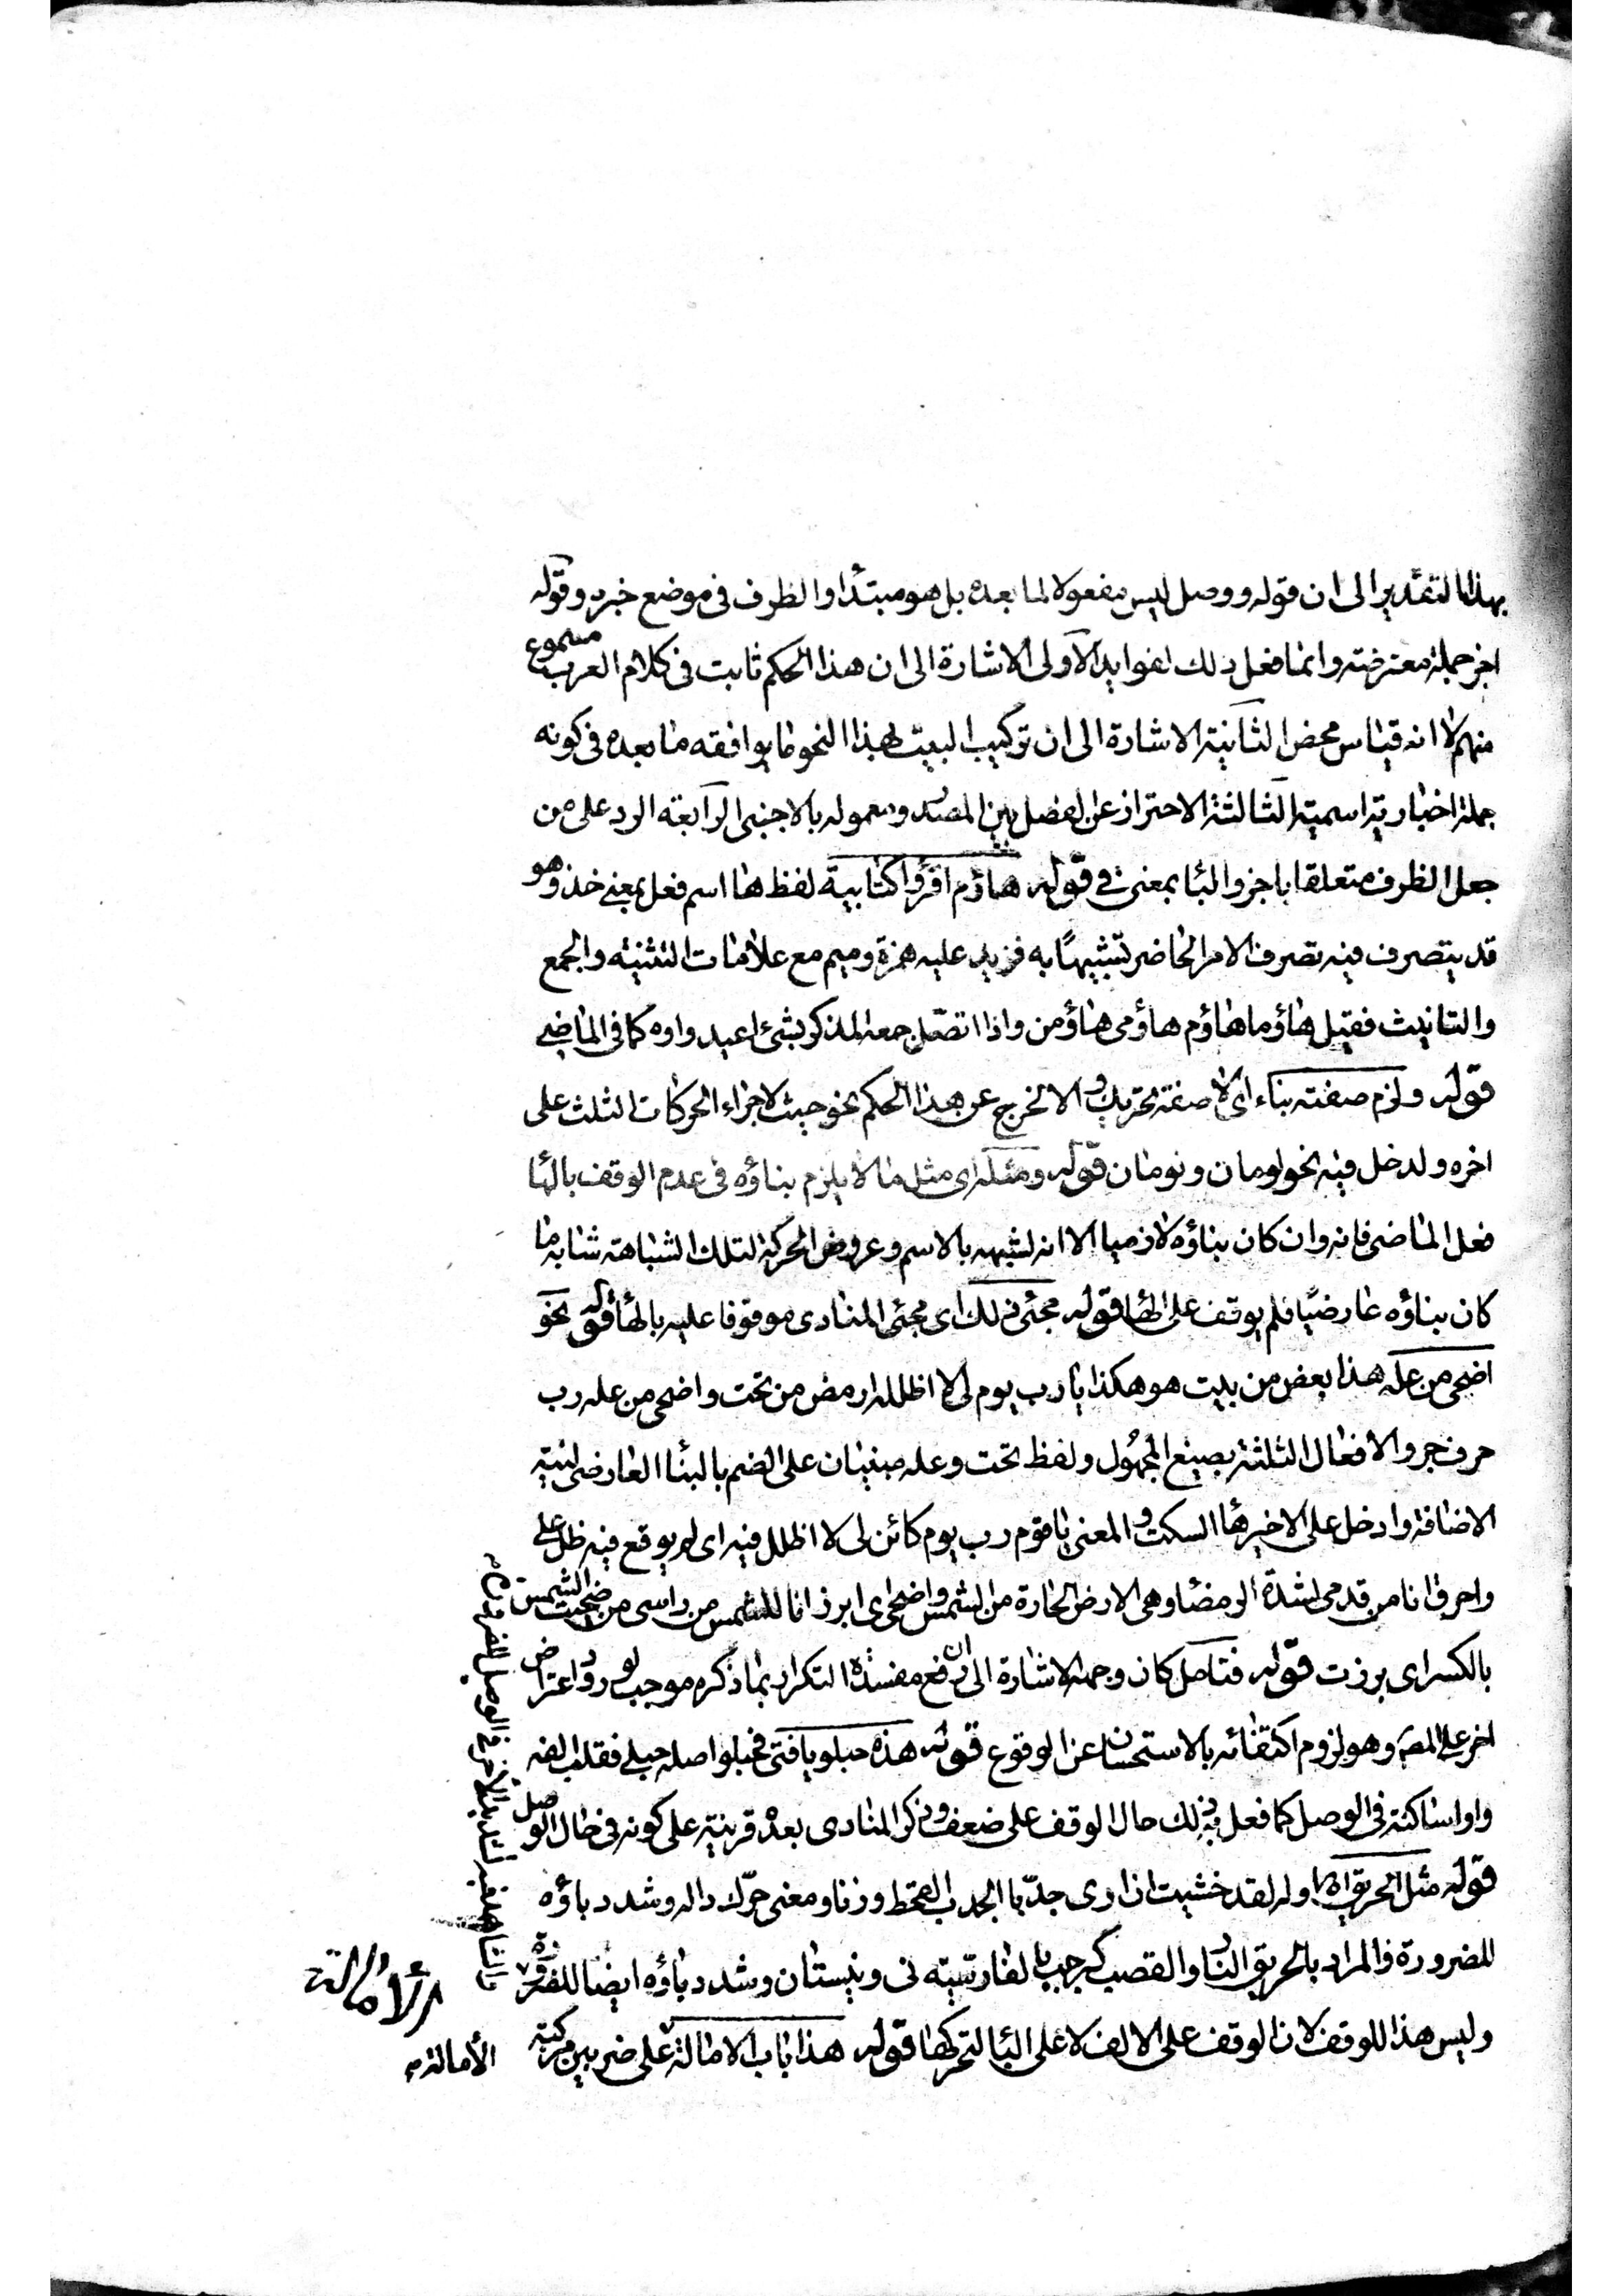 بهذا التقدير الى ان قوله ووصل ليس مفعولا لما بعده بل هو مبتدأ والظرف فى موضع خبره وقوله
اجز جملة معترضة وانما فعل ذلك لفوايد الاولى الاشارة الى ان هذا الحكم ثابت فى كلام العرب مسموع
منهم لا انه قياس محض الثانية الاشارة الى ان تركيب البيت بهذا النحو ما يوافقه ما بعده فى كونه
جملة اخبارية اسمية الثالثة الاحتراز عن الفصل بين المصدر ومعموله بالاجنبى الرابعة الرد على من
جعل الظرف متعلقا باجز والبا بمعنى فى قوله هاؤم اقرؤا كتابيه لفظ ها اسم فعل بمعنى خذ وهو
قد يتصرف فيه تصرف الامر الحاضر تشبيهًا به فزيد عليه همزة وميم مع علامات التثنية والجمع
والتانيث فقيل هاؤما هاؤم هاؤمى هاؤمن واذا اتصل جمعه المذكر بشئ اعيد واوه كما فى الماضى
قوله ولزم صفته بناء اى لا صفة تحريك والا لخرج عن هذا الحكم نحو حيث لاجراء الحركات الثلث على
اخره ولدخل فيه نحو لومان ونومان قوله ومثله اى مثل ما لا يلزم بناؤه فى عدم الوقف بالها
فعل الماضى فانه وان كان بناؤه لازميا الا انه لشبهه بالاسم وعروض الحركة لتلك الشباهة شابه ما
كان بناؤه عارضيًا فلم يوقف على الها قوله مجئ ذلك اى مجئ المنادى موقوفا عليه بالها قوله نحو
اضحى من عله هذا بعض من بيت هو هكذا يا رب يوم لى لا اظلله ارمض من تحت واضحى من عله رب
حرف جر والافعال الثلثة بصيغ المجهُول ولفظ تحت وعله مبنيان على الضم بالبنا العارضى لنية
الاضافة وادخل على الاخير ها السكت و المعنى يا قوم رب يوم كائن لى لا اظلل فيه اى لم يوقع فيه ظل على
واحرق انا من قدمى لشدة الرمضا وهى الارض الحارة من الشمس واضحى اى ابرز انا للشمس من راسى من ضحيت الشمس
بالكسر اى برزت قوله فتامل كان وجهه الاشارة الى ان رفع مفسدة التكرار بما ذكره موجب لورود اعتراض
اخر على المصـ وهو لزوم اكتفائه بالاستحسان عن الوقوع قوله هذه حبلو يا فتى فحبلو اصله حبلى فقلب الفه
واوا ساكنة فى الوصل كما فعل به ذلك حال الوقف على ضعف وذكر المنادى بعده قرينة على كونه فى حال الوصل
قوله مثل الحريق اه اوله لقد خشيت ان ارى جدبّا الجدب القحط وزنا ومعنى حرّك داله وشدد باؤه
للضرورة والمراد بالحريق النار والقصب كرجب بالفارسية نى ونيستان وشدد باؤه ايضا للضرورة
وليس هذا للوقف لان الوقف على الالف لا على البا لتحركها قوله هذا باب الامالة على ضربين حركة
الأمالة
الأمالة